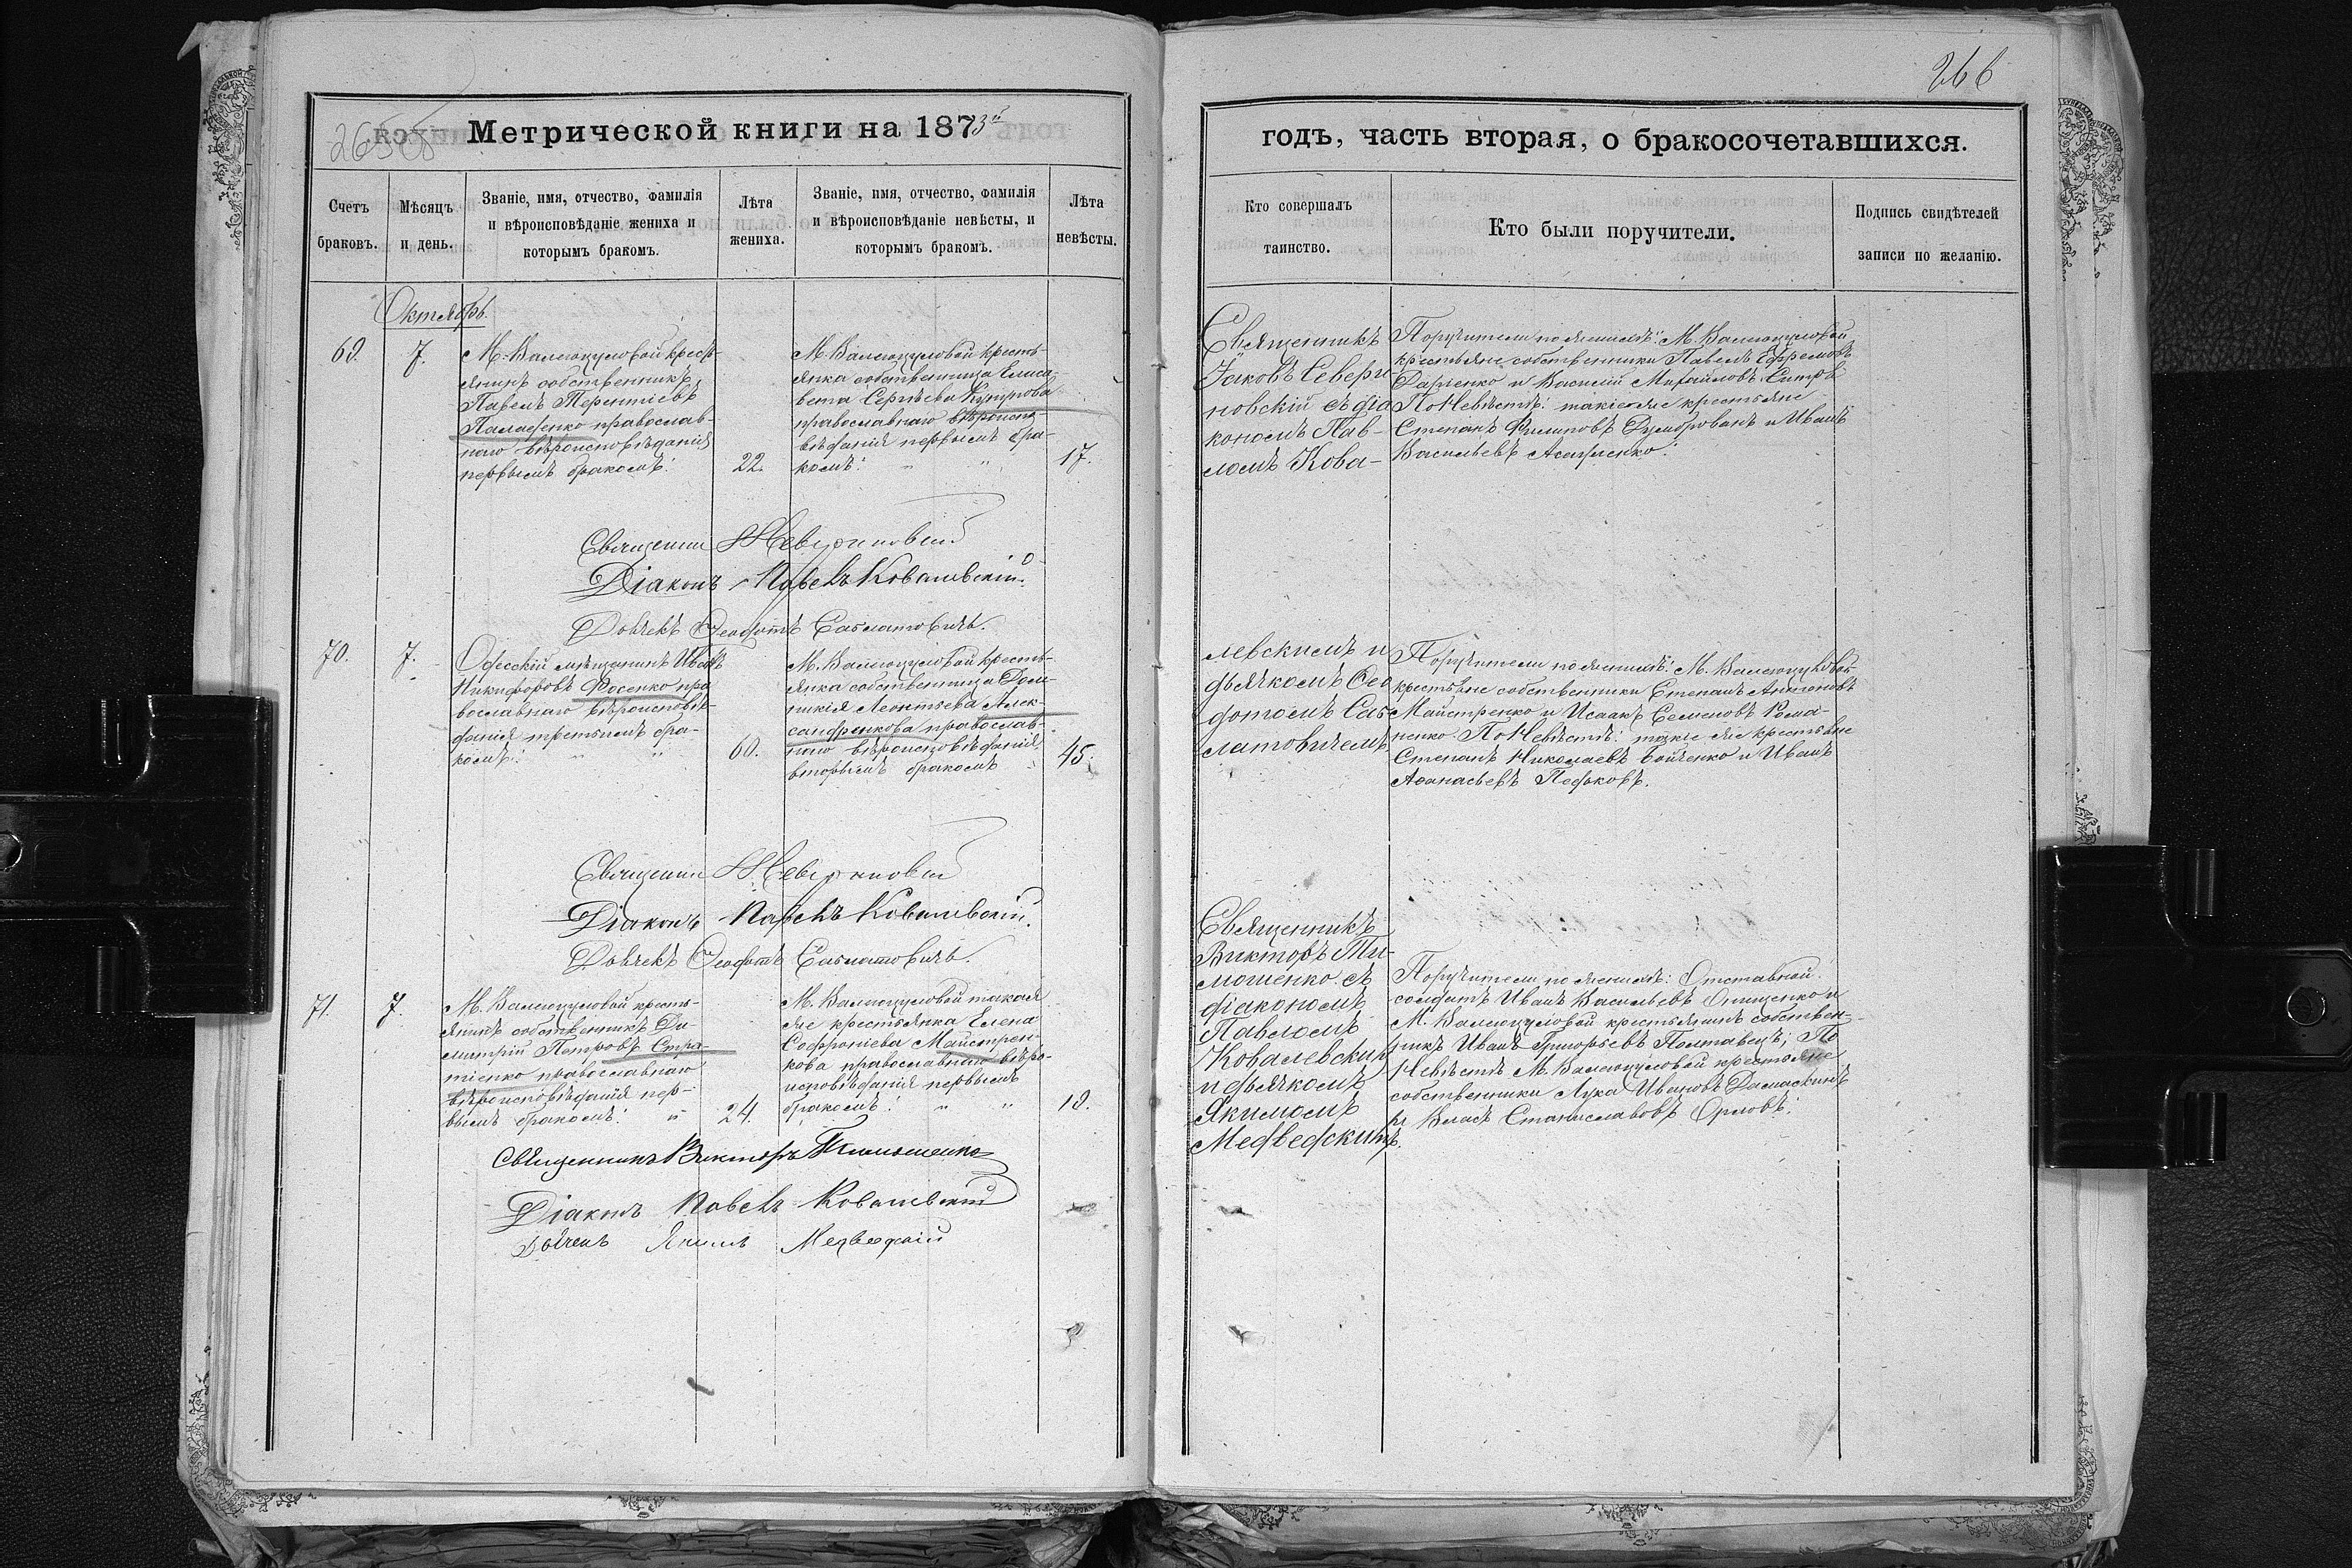 266
Метрической книги на 1873й
годъ, часть вторая, о бракосочетавшихся.
Счетъ браковъ.
Мѣсяцъ и день.
Званіе, имя, отчество, фамилія
и вѣроисповѣданіе жениха и
которымъ бракомъ.
Лѣта
жениха.
Званіе, имя, отчество, фамилія
и вѣроисповѣданіе невѣсты, и
которымъ бракомъ.
Лѣта
невѣсты.
Кто совершалъ
таинство.
Кто были поручители.
Подпись свидѣтелей
записи по желанію.
Октябрь.
69.
7.
М. Валегоцуловой кресть-
янинъ собственникъ
Павелъ Терентіевъ
православ-
наго вѣроисповѣданія
первымъ бракомъ.
22.
М. Валегоцуловой кресть-
янка собственница Елиса-
вета Сергѣева
православнаго вѣроиспо-
вѣданія первымъ бра-
комъ.
17.
Священникъ
Іаковъ Севери-
новскій съ діа
кономъ Пав-
ломъ Кова-
Поручители по женихѣ: М. Валегоцуловой
крестьяне собственники Павелъ Ефремовъ
и Василій Михайловъ
По Невѣстѣ: такіе же крестьяне
Степанъ Филиповъ и Иванъ
Васильевъ
Священникъ Севериновскій
Діаконъ Павелъ Ковалевскій.
Дьячекъ Ѳеодотъ Савлатовичъ.
70.
7.
Одесскій мѣщанинъ Иванъ
Никифоровъ Носенко пра
вославнаго вѣроисповѣ-
данія третьимъ бра-
комъ.
60.
М. Валегоцуловой кресть-
янка собственница Дом-
никія Леонтьева Алек-
сандренкова православ-
наго вѣроисповѣданія
вторымъ бракомъ
45.
левскимъ и
дьячкомъ Ѳео
дотомъ Сав
латовичемъ
Поручители по женихѣ: М. Валегоцуловой
крестьяне собственники Степанъ Антоновъ
Майстренко и Исаакъ Семеновъ Рома-
ненко По Невѣстѣ: такіе же крестьяне
Степанъ Николаевъ Бойченко и Иванъ
Аѳанасьевъ Педьковъ.
Священникъ Севериновскій
Діаконъ Павелъ Ковалевскій.
Дьячекъ Ѳеодотъ Савлатовичъ.
71.
7.
М. Валегоцуловой кресть-
янинъ собственникъ Ди-
митрій Петровъ Стра-
тіенко православнаго
вѣроисповѣданія пер-
вымъ бракомъ.
24.
М. Валегоцуловой такая
же крестьянка Елена
Софроніева Майстрен-
кова православнаго вѣро-
исповѣданія первымъ
бракомъ.
19.
Священникъ
Викторъ Ти-
мошенко съ
діакономъ
Павломъ
Ковалевскимъ
и дьячкомъ
Якимомъ
Медведскимъ.
Поручители по женихѣ: Отставной
солдатъ Иванъ Васильевъ Онищенко и
М. Валегоцуловой крестьянинъ собствен-
никъ Иванъ Григорьевъ Полтавецъ; По
Невѣстѣ М. Валегоцуловой крестьяне
собственники Лука Ивановъ Дамаскинъ
и Власъ Станиславовъ Орловъ.
Священникъ Викторъ Тимошенко
Діаконъ Павелъ Ковалевскій
Дьячекъ Якимъ Медведскій